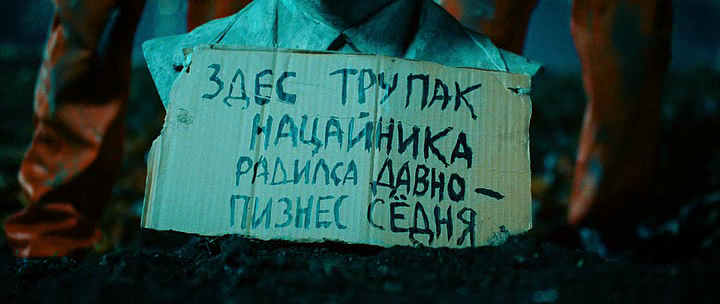 ЗДЕС ТРУПАК
НАЦАЙНИКА
РАДИЛСА ДАВНО —
ПИЗНЕС СЁДНЯ